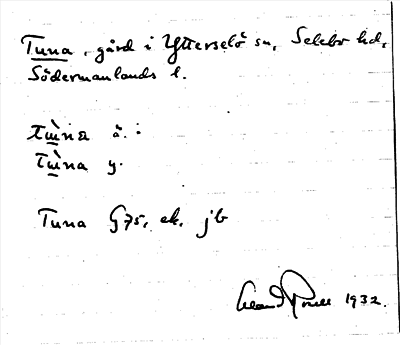 Tuna, gård i Ytterselö sn, Selebo hd,
Södermanlands l.
tẁna ä.
tẁna y.
Tuna G75, ek, jb
1932.